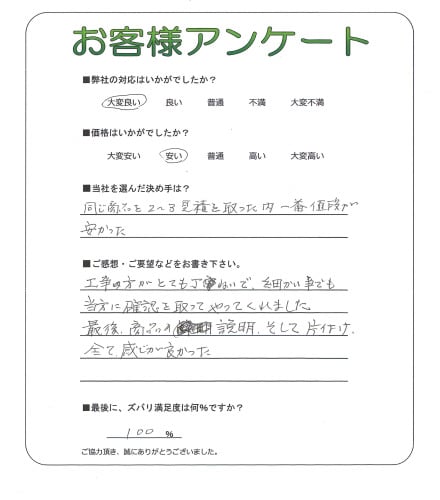 お客様アンケート
■弊社の対応はいかがでしたか?
大変良い 良い 普通 不満 大変不満
■価格はいかがでしたか?
大変安い 安い 普通 高い 大変高い
■当社を選んだ決め手は?
同じ商品を2~3見積を取った内 一番値段が
安かった
■ご感想・ご要望などをお書き下さい。
工事の方がとても丁寧ないで、細かい事でも
当方に確認を取ってやってくれました。
最後、商品の 説明、そして片付け、
全て感じが良かった
■最後に、ズバリ満足度は何%ですか?
100 %
ご協力頂き、誠にありがとうございました。